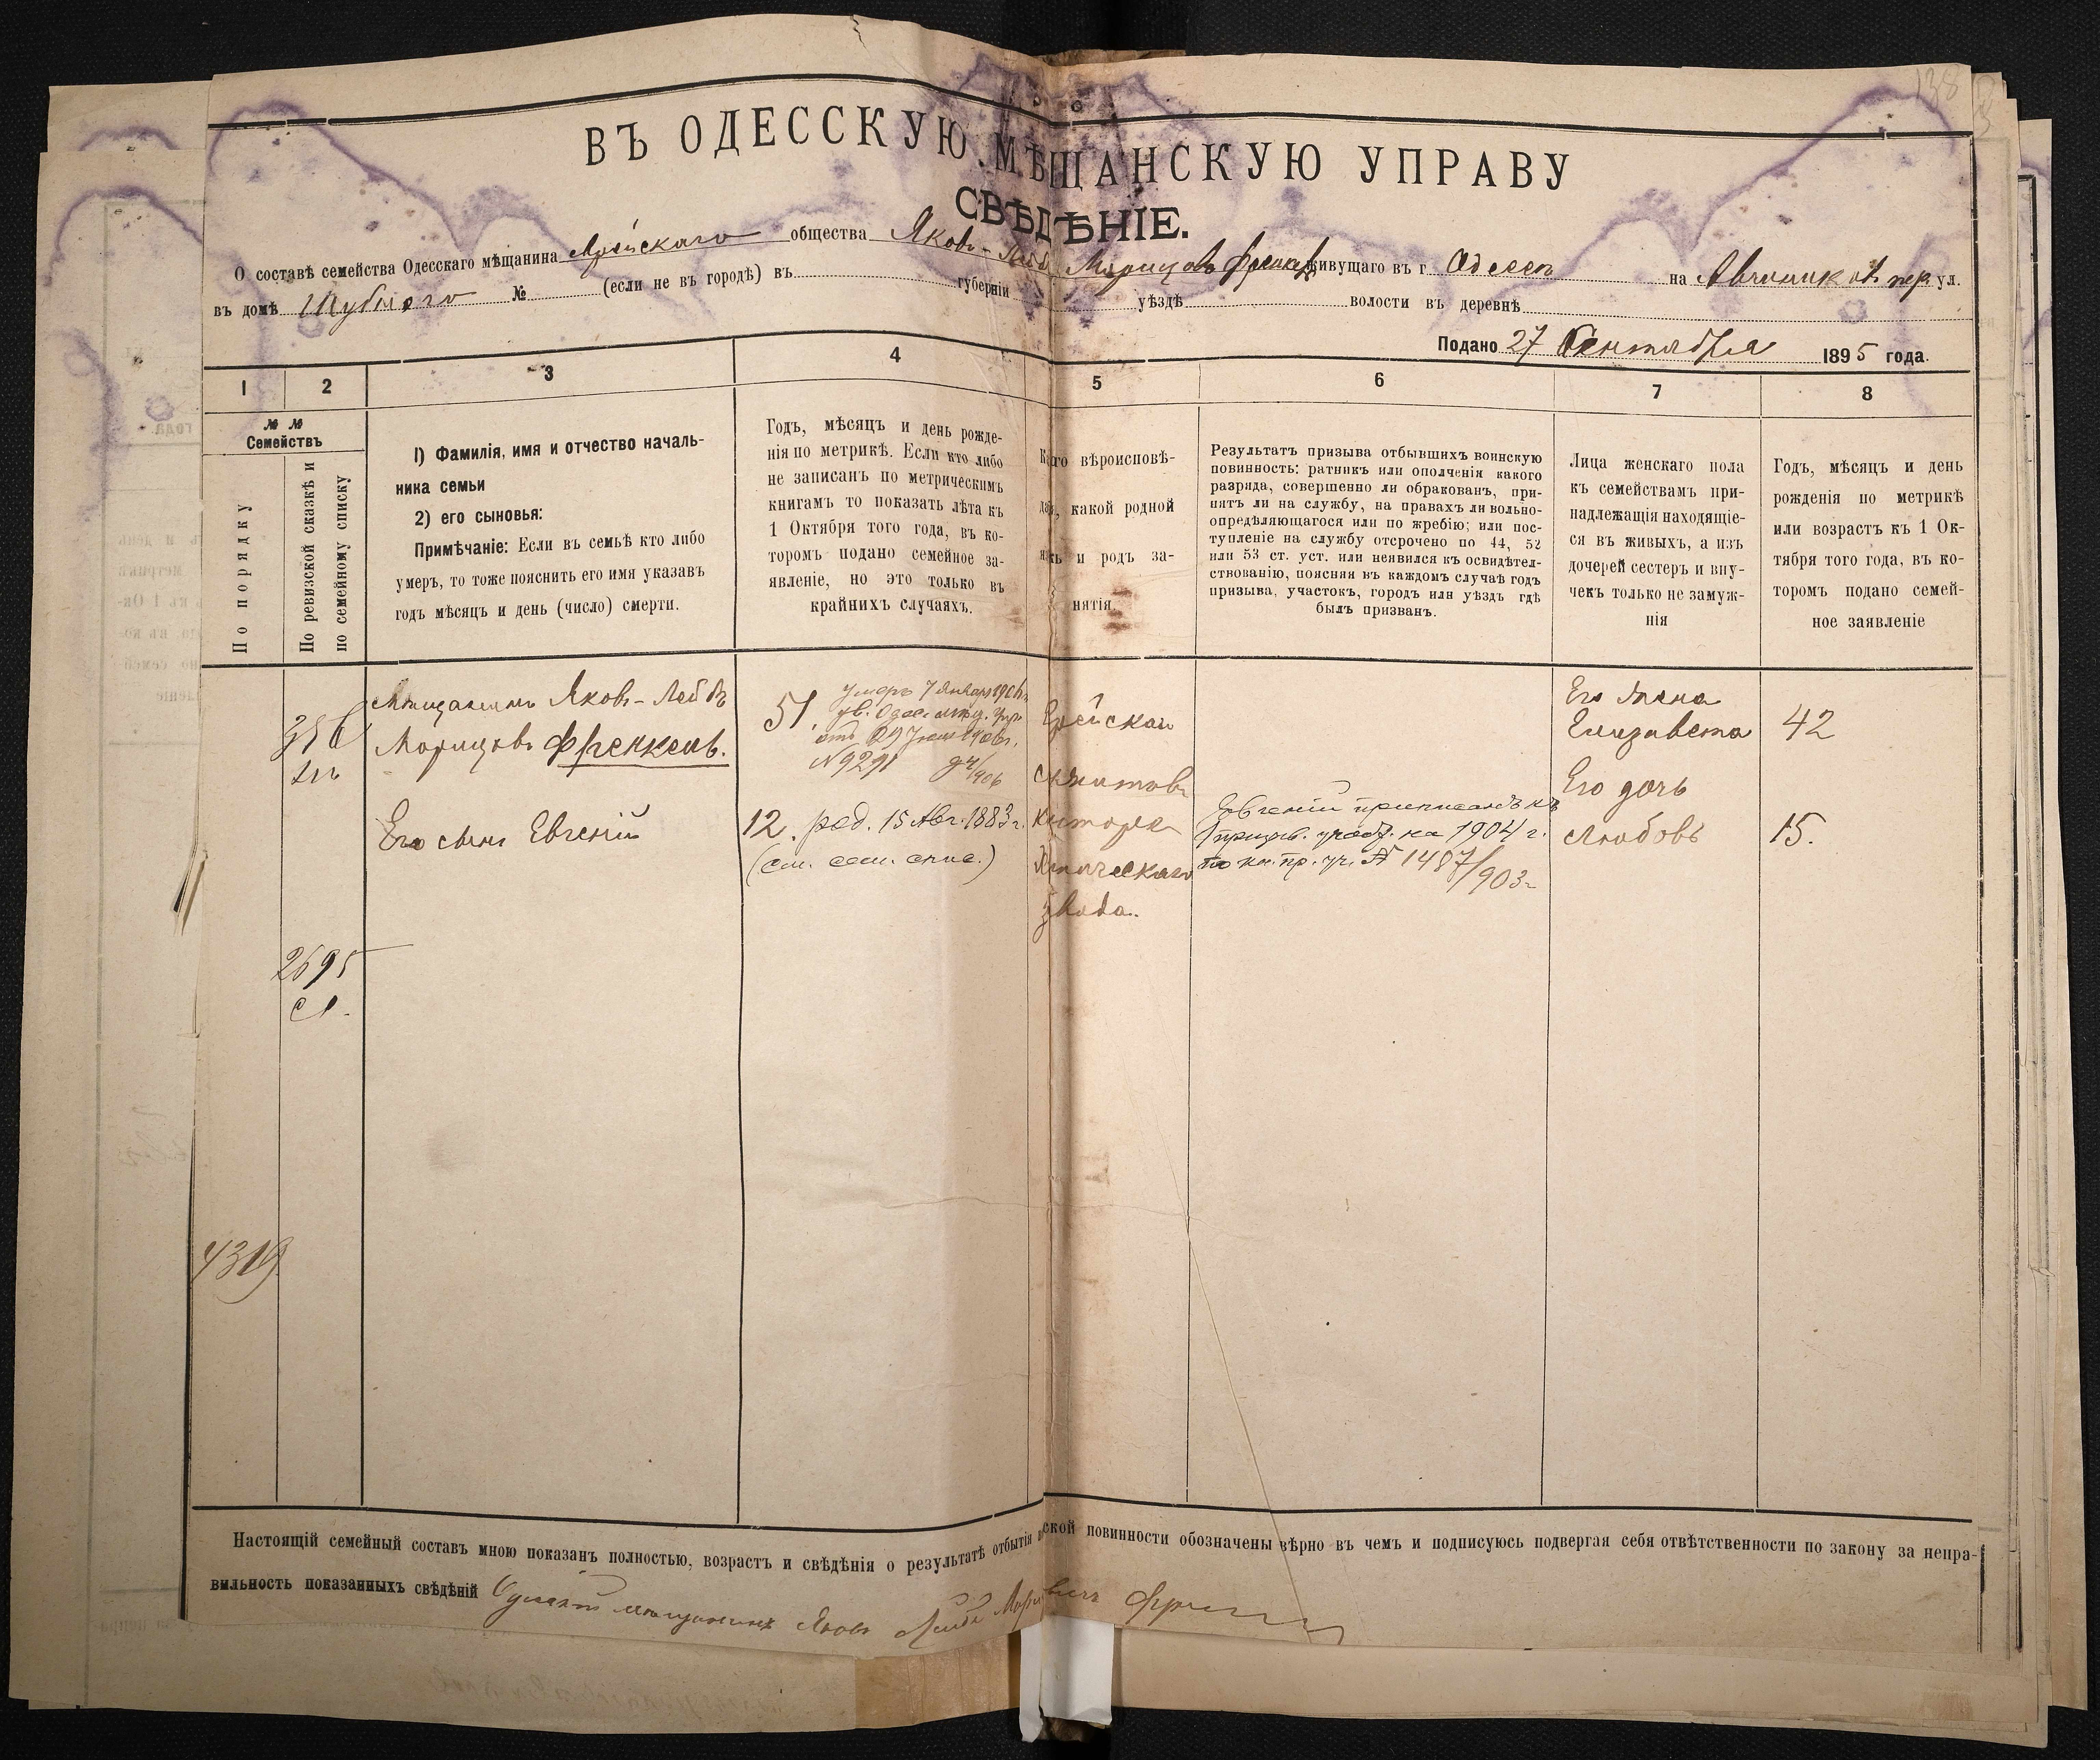 138
ВЪ ОДЕССКУЮ МѢЩАНСКУЮ УПРАВУ
СВѢДѢНІЕ.
О составѣ семейства Одесскаго мѣщанина общества Яковъ-Лейб Морицовъ Френкель живущаго въ г. Одессѣ на Авчинников. пер. ул.
въ домѣ № (если не въ городѣ) въ губерніи уѣздѣ волости въ деревнѣ
Подано 27 Сентября 1895 года.
1 2 3 4 5 6 7 8
№ №
Семействъ
По порядку
По ревизской сказкѣ и
по семейному списку
1) Фамилія, имя и отчество началь-
ника семьи
2) его сыновья:
Примѣчаніе: Если въ семьѣ кто либо
умеръ, то тоже пояснить его имя указавъ
годъ мѣсяцъ и день (число) смерти.
Годъ, мѣсяцъ и день рожде-
нія по метрикѣ. Если кто либо
не записанъ по метрическимъ
книгамъ то показать лѣта къ
1 Октября того года, въ ко-
торомъ подано семейное за-
явленіе, но это только въ
крайнихъ случаяхъ.
вѣроисповѣ-
какой родной
и родъ за-
нятія
Результатъ призыва отбывшихъ воинскую
повинность: ратникъ или ополченія какого
разряда, совершенно ли обракованъ, при-
нятъ ли на службу, на правахъ ли вольно-
опредѣляющагося или по жребію; или пос-
тупленіе на службу отсрочено по 44, 52
или 53 ст. уст. или неявился къ освидѣтел-
ствованію, поясняя въ каждомъ случаѣ годъ
призыва, участокъ, городъ или уѣздъ гдѣ
былъ призванъ.
Лица женскаго пола
къ семействамъ при-
надлежащія находящіе-
ся въ живыхъ, а изъ
дочерей сестеръ и вну-
чекъ только не замуж-
нія
Годъ, мѣсяцъ и день
рожденія по метрикѣ
или возрастъ къ 1 Ок-
тября того года, въ ко-
торомъ подано семей-
ное заявленіе
Мѣщанинъ Яковъ-Лейбъ
Морицовъ Френкель.
51. умеръ 7 Января 1906 г.
№ 9291
Еврейская
Его жена
Елизавета 42
Его сынъ Евгеній
12. род. 15 Авг. 1883 г.
(см. сем. спис.)
Евгеній приписанъ къ
призыв. участ. на 1904 г.
по кн. пр. уч. № 1487/903 г.
Его дочь
Любовь 15.
2695
4319
Настоящій семейный составъ мною показанъ полностью, возрастъ и свѣдѣнія о результатѣ отбытія повинности обозначены вѣрно въ чемъ и подписуюсь подвергая себя отвѣтственности по закону за непра-
вильность показанныхъ свѣдѣній Одесскій мѣщанинъ Яковъ Лейба